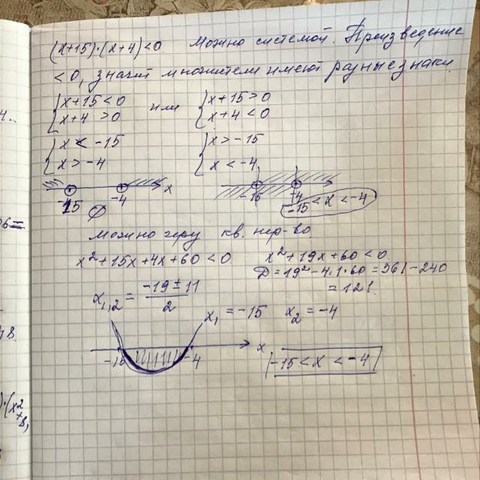 (x+15)·(x+4)<0 Можно системой. Произведение
<0, значит множители имеют разные знаки.
{x+15<0 или {x+15>0
{x+4>0 {x+4<0
{x<-15 {x>-15
{x>-4 {x<-4
-15 -4 x -15 -4
∅ -15<x<-4
Можно через кв. нер-во
x²+15x+4x+60<0 x²+19x+60<0
D=19²-4·1·60=361-240
=121
x₁,₂ = (-19±11)/2
x₁=-15 x₂=-4
-15 -4 x
-15<x<-4